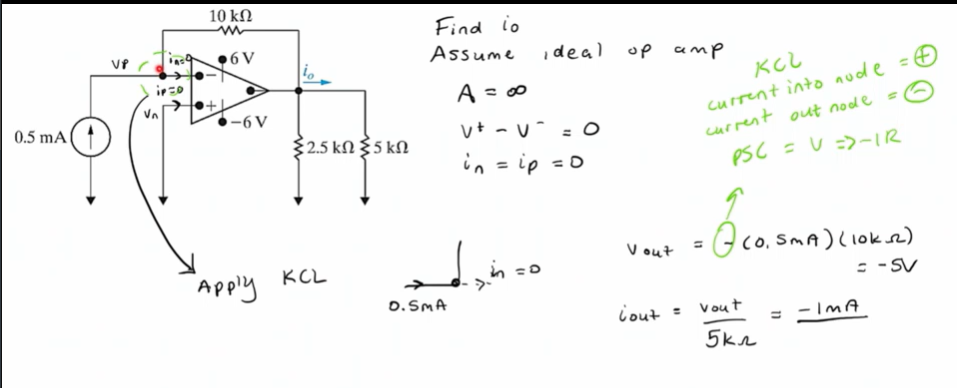 10 kΩ
VP
in=0
6 V
ip=0
Vn
−
+
−6 V
io
0.5 mA
2.5 kΩ
5 kΩ
Apply KCL
Find io
Assume ideal op amp
A = ∞
V+ - V- = 0
in = ip = 0
KCL
current into node = +
current out node = -
PSC = V => -IR
0.5mA
in = 0
Vout = -(0.5mA)(10kΩ)
= -5V
iout = Vout / 5kΩ = -1mA